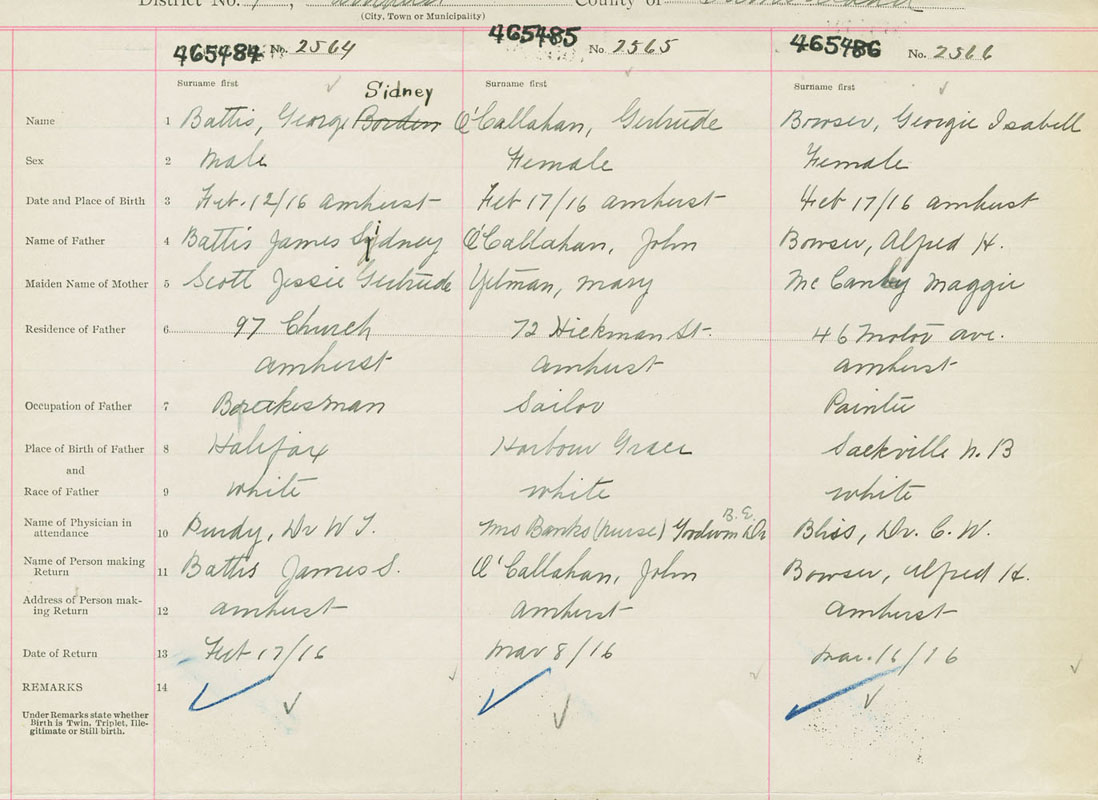 District No. 7, County of
(City, Town or Municipality)
465484 No. 2564 465485 No. 2565 465486 No. 2566
Surname first Surname first Surname first
Sidney
Name 1 Battis, George Borden O'Callahan, Gertrude Bowser, Georgie Isabell
Sex 2 Male Female Female
Date and Place of Birth 3 Feb. 12/16 Amherst Feb 17/16 Amherst Feb 17/16 Amherst
Name of Father 4 Battis James Sidney O'Callahan, John Bowser, Alfred H.
Maiden Name of Mother 5 Scott Jessie Gertrude Yetman, Mary Maggie
Residence of Father 6 97 Church 72 Hickman St. 46 Ave.
Amherst Amherst Amherst
Occupation of Father 7 Sailor Painter
Place of Birth of Father 8 Halifax Harbour Grace Sackville N. B
and
Race of Father 9 White White White
B. E.
Name of Physician in
attendance 10 Purdy, Dr W T. Mrs Banks (nurse) Goodwin Dr Bliss, Dr. C. W.
Name of Person making
Return 11 Battis James S. O'Callahan, John Bowser, Alfred H.
Address of Person mak-
ing Return 12 Amherst Amherst Amherst
Date of Return 13 Feb 17/16 Mar 8/16 Mar. 16/16
REMARKS 14
Under Remarks state whether
Birth is Twin, Triplet, Ille-
gitimate or Still birth.